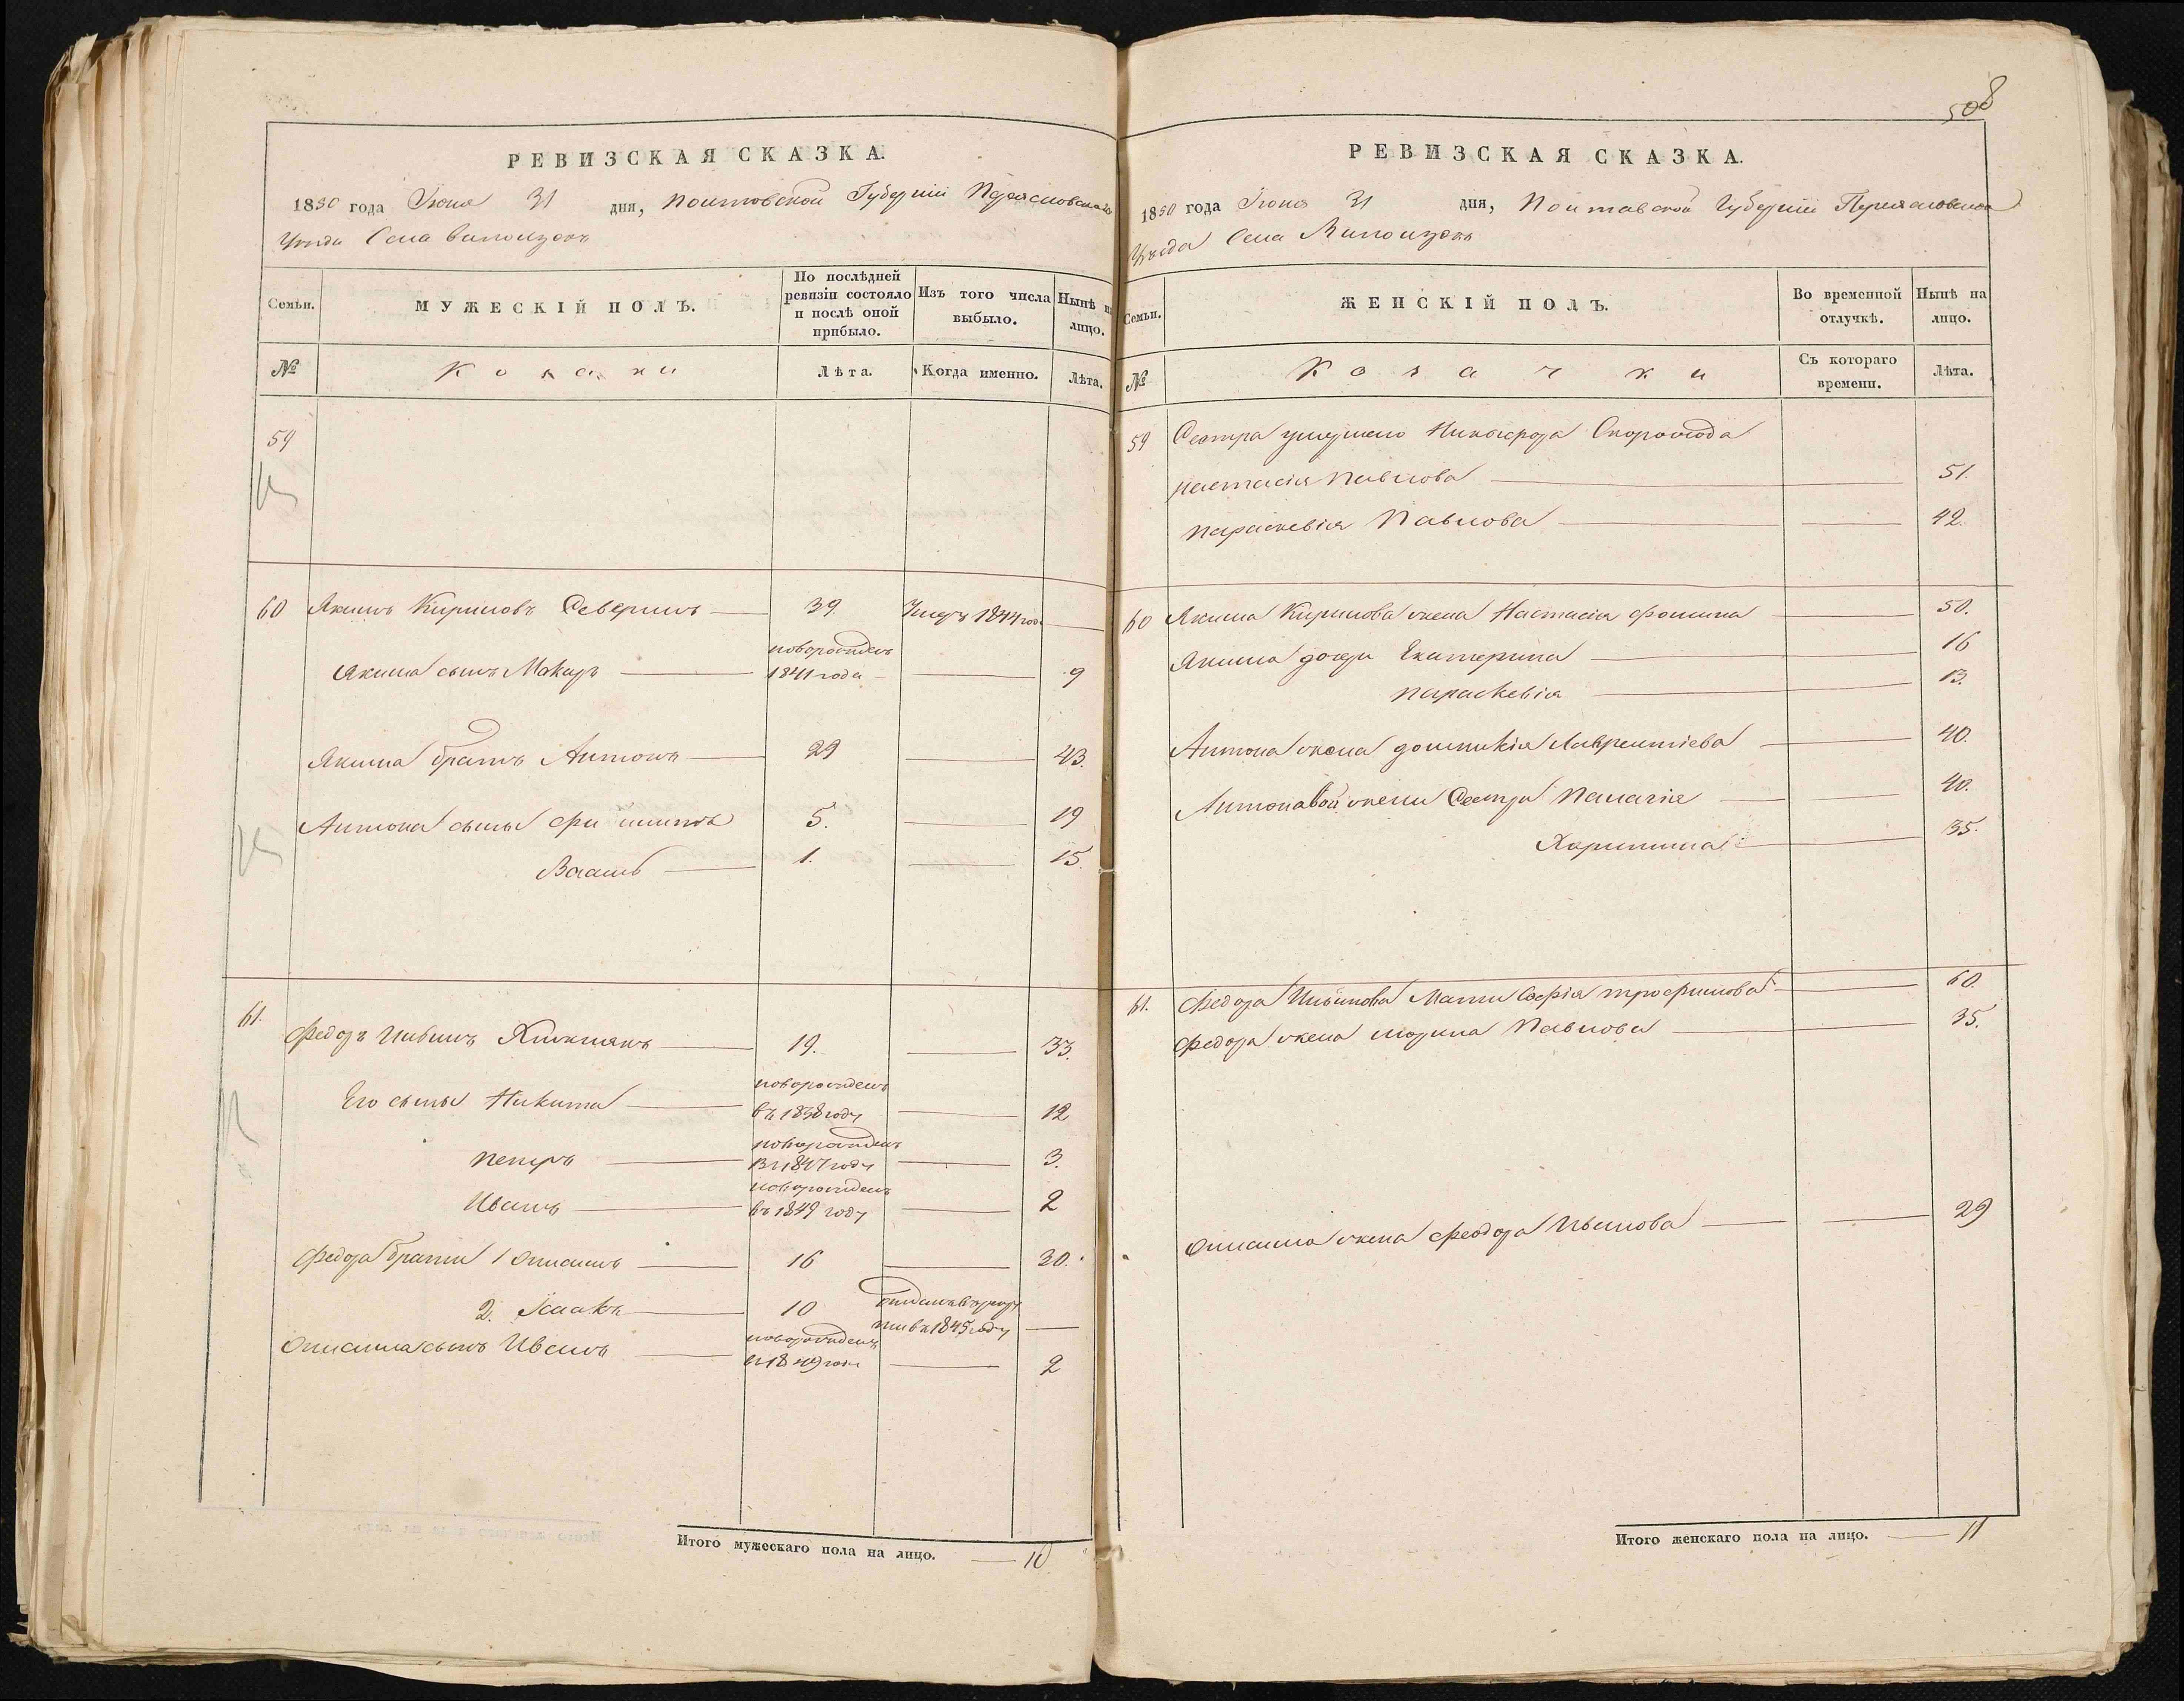 РЕВИЗСКАЯ СКАЗКА.
1850 года Июня 31 дня, Полтавской Губерніи Переяславскаго
Уезда Села
Семьи.
МУЖЕСКІЙ ПОЛЪ.
По послѣдней ревизіи состояло и послѣ оной прибыло.
Изъ того числа выбыло.
Нынѣ на лицо.
№
Козаки
Лѣта.
Когда именно.
Лѣта.
59
60 Якимъ Кириловъ Северинъ 39. Умеръ 1844 год
Якима сынъ Макаръ новорожденъ 1841 года 9
Якима братъ Антонъ 29 43.
Антона сыны Филиппъ 5. 19
Власъ 1. 15.
61. Федоръ Ильинъ 19. 33.
Его сыны Никита новорожденъ въ 1838 году 12
Петръ новорожденъ въ 1847 году 3.
Иванъ новорожденъ въ 1849 году 2
Федора братья 1 16 30.
2. Исаакъ 10 въ 1845 году
сынъ Иванъ новорожденъ въ 1849 году 2
Итого мужескаго пола на лицо. 10
508
РЕВИЗСКАЯ СКАЗКА.
1850 года Июня 31 дня, Полтавской Губерніи Переяславской
Уѣзда Села
Семьи.
ЖЕНСКІЙ ПОЛЪ.
Во временной отлучкѣ.
Нынѣ на лицо.
№
Козачки
Съ котораго времени.
Лѣта.
59 Сестра умершего Никифора Скорохода
Настасія Павлова 51.
Параскевія Павлова 42.
60 Якима Кирилова жена Настасія Фомина 50.
Якима дочери Екатерина 16
Параскевія 13.
Антона жена Домникія Лаврентіева 40.
Антоновой жены Сестры Палагія 40.
Харитина 35.
61. Федора Ильинова Мати Софія Трофимова 60.
Федора жена Марина Павлова 35.
жена Феодора Иванова 29
Итого женскаго пола на лицо. 11